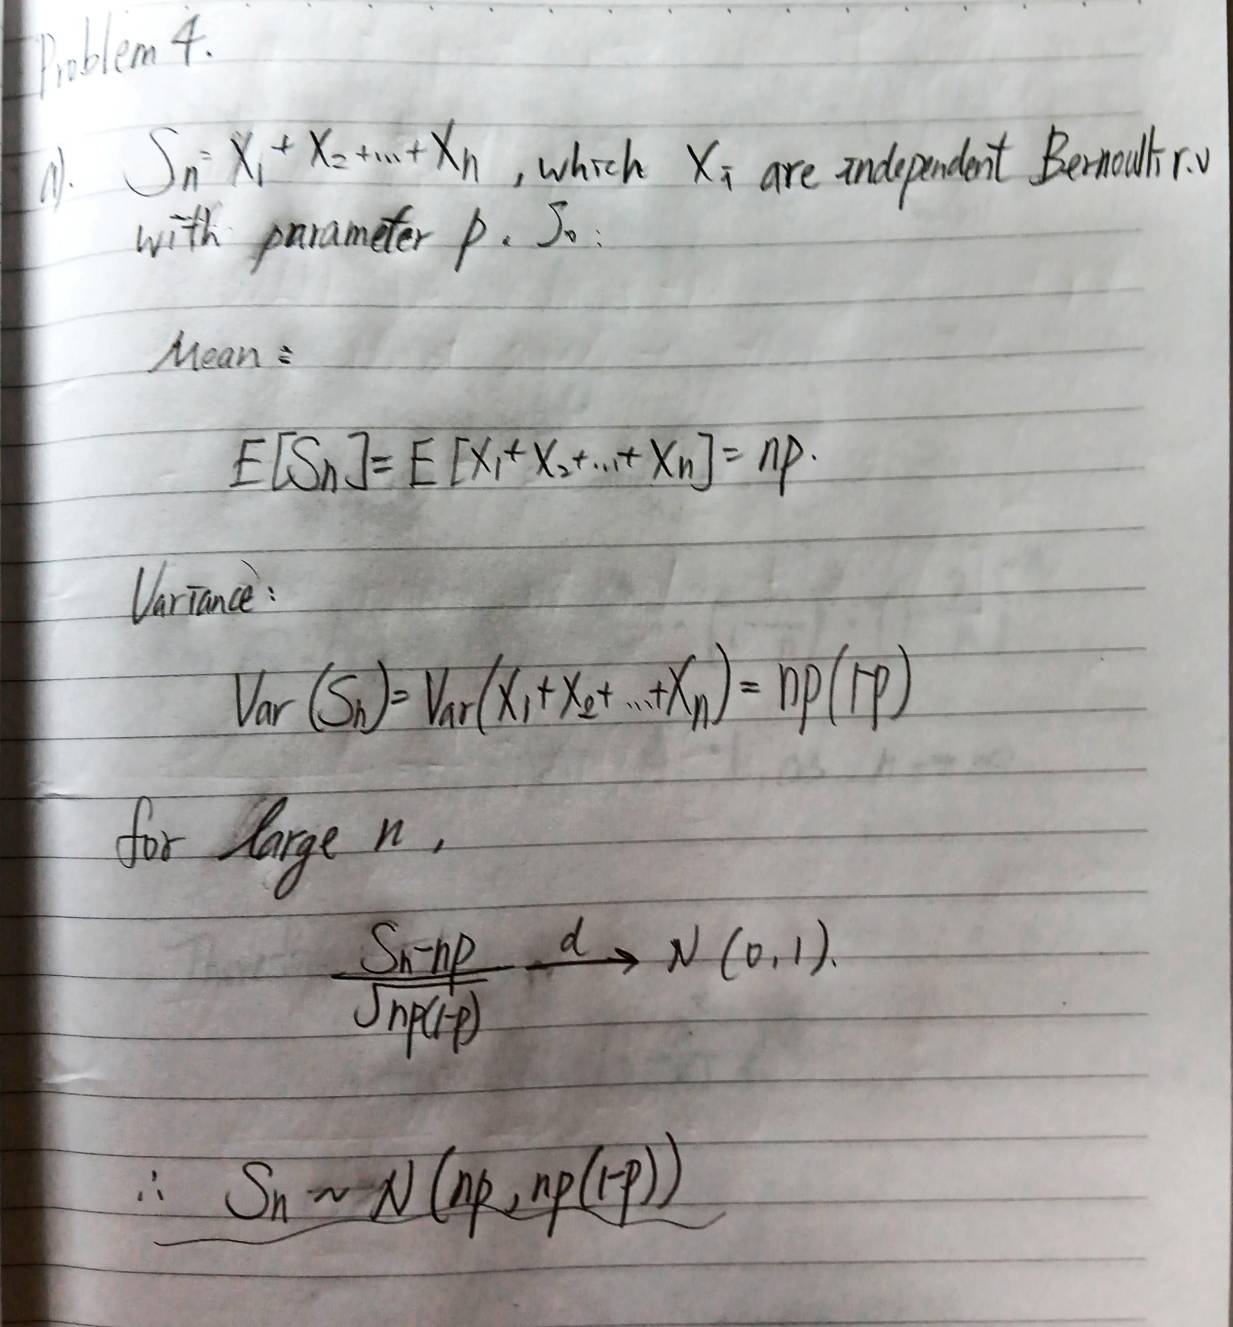 Problem 4.
a). Sn = X₁ + X₂ + ... + Xn , which Xi are independent Bernoulli r.v
with parameter p. So:
Mean:
E[Sn] = E[X₁ + X₂ + ... + Xn] = np.
Variance:
Var(Sn) = Var(X₁ + X₂ + ... + Xn) = np(1-p)
for large n,
(Sn-np)/√np(1-p) →ᵈ N(0,1).
∴ Sn ~ N(np, np(1-p))